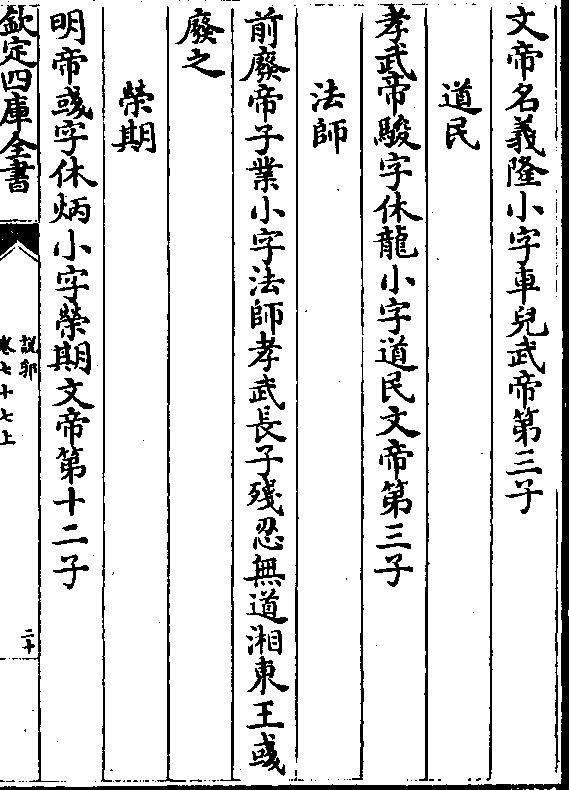 文帝名義隆小字車兒武帝第三子
道民
孝武帝駿字休龍小字道民文帝第三子
法師
前廢帝子業小字法師孝武長子殘忍無道湘東王彧
廢之
榮期
明帝彧字休炳小字榮期文帝第十二子
欽定四庫全書
說郛
卷七十七上
二十